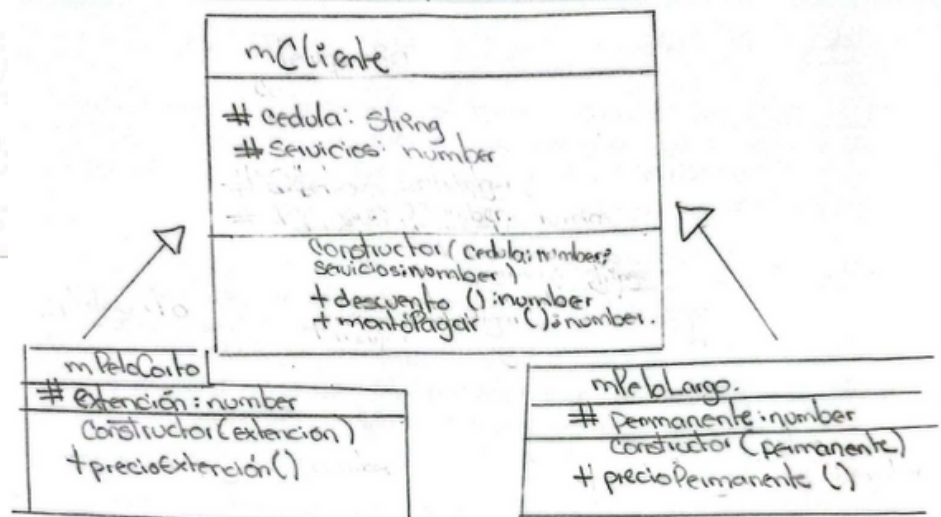 mCliente
# cedula: String
# servicios: number
constructor (cedula: number;
servicios: number)
+ descuento () : number
+ montoPagar () : number.
mPeloCorto
# extención : number
constructor (extención)
+ precioExtención ()
mPeloLargo.
# permanente : number
constructor (permanente)
+ precioPermanente ()